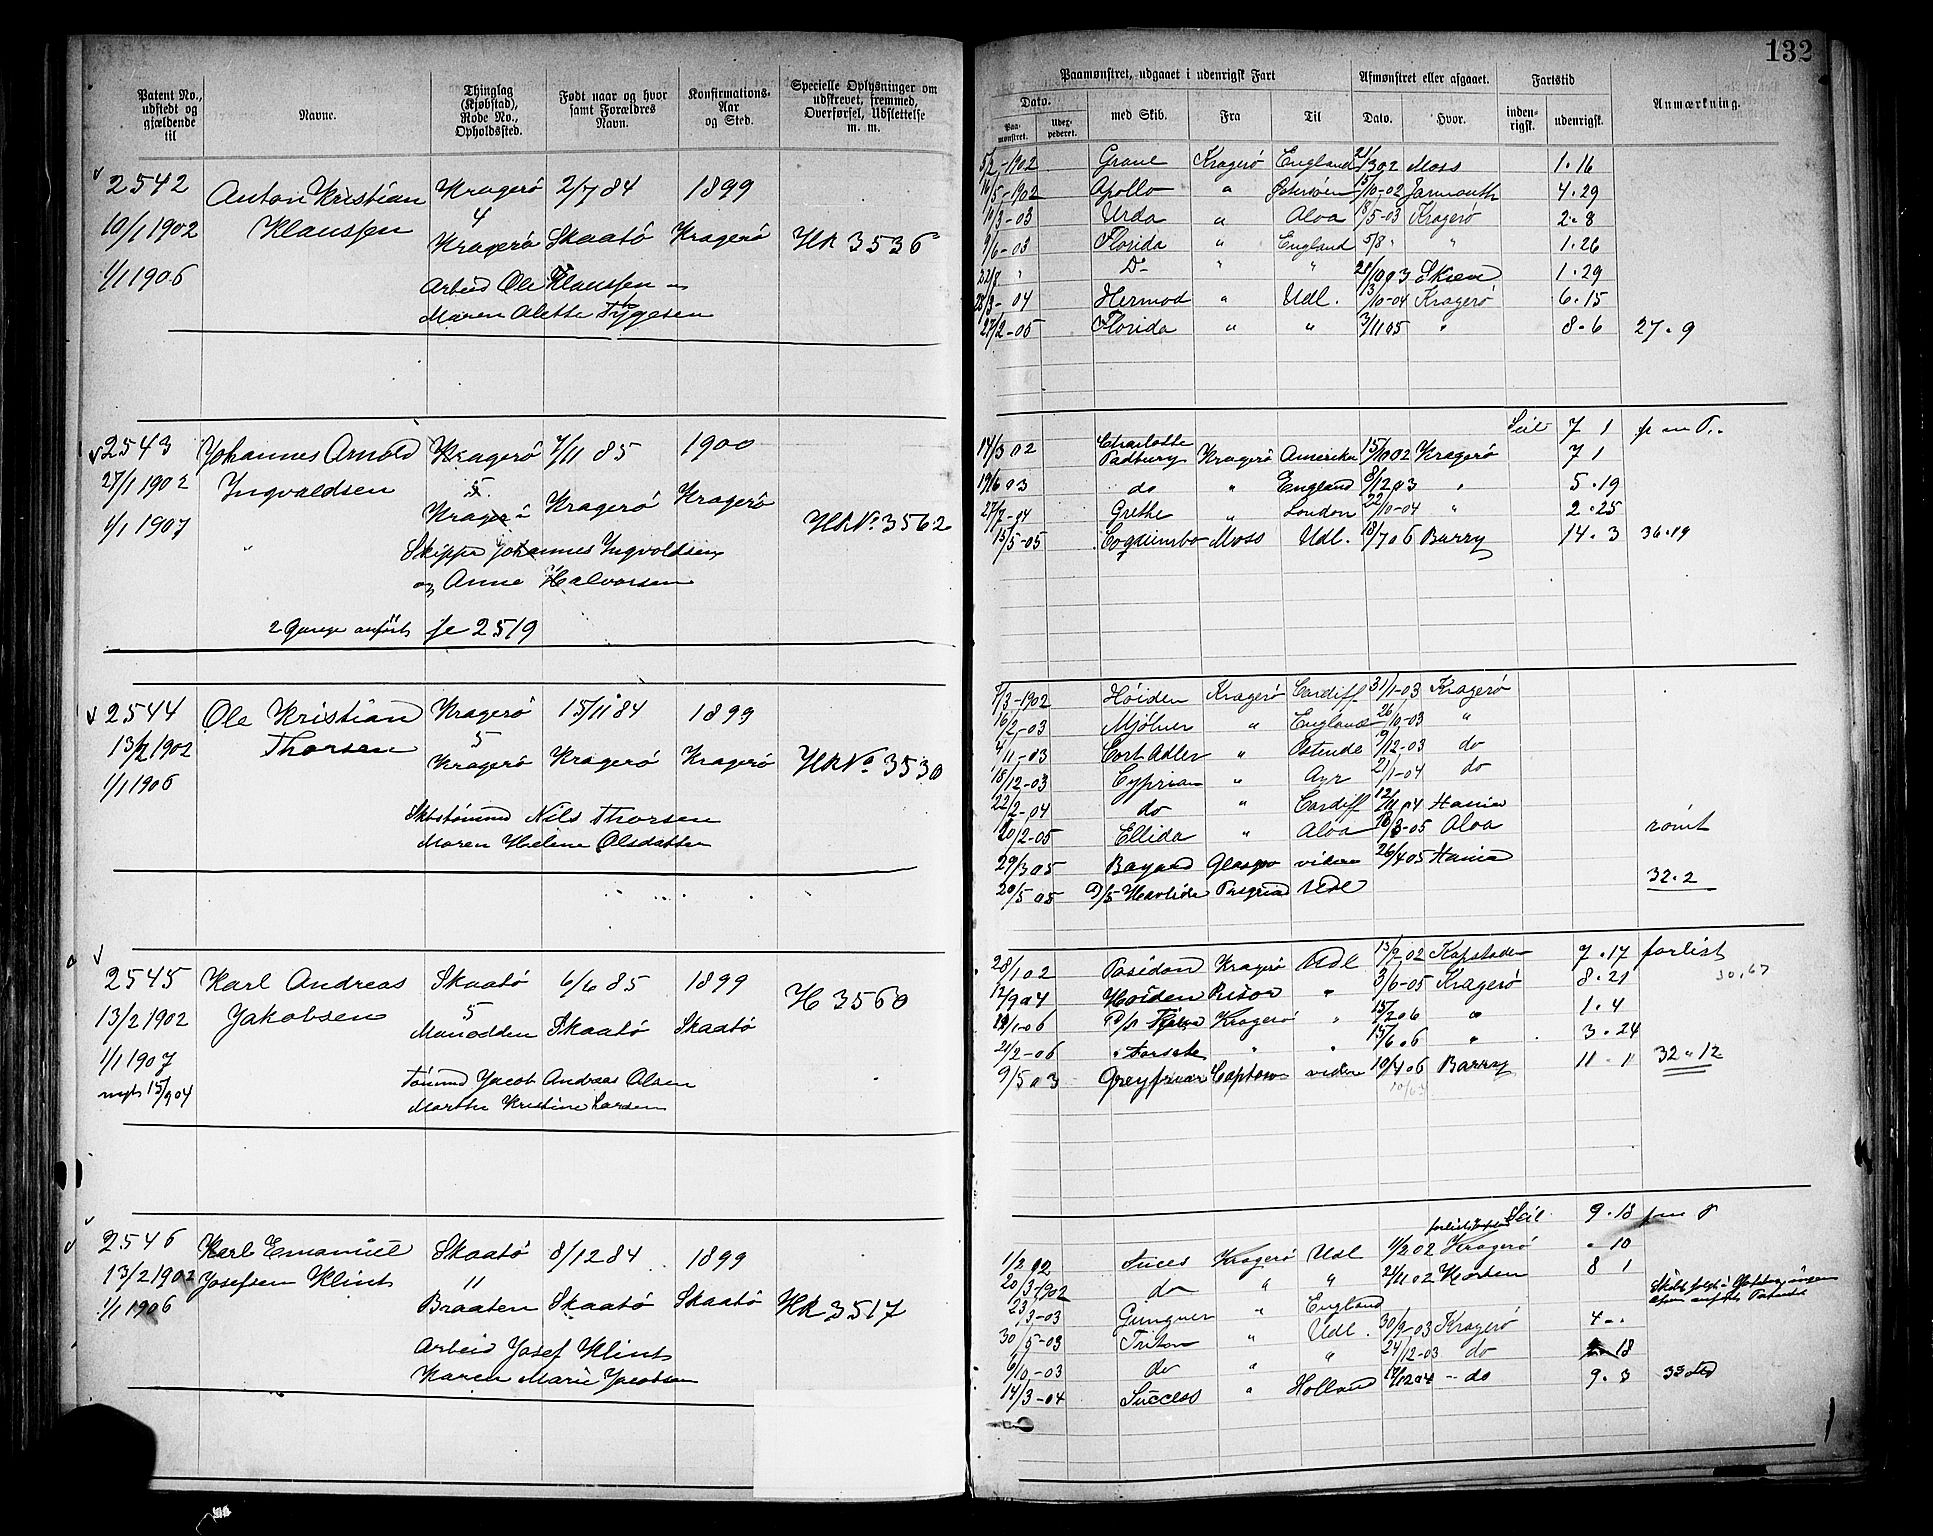 132
Patent No., udstedt og gjældende til
Navne.
Thinglag (Kjøbstad), Rode No., Opholdssted.
Født naar og hvor samt Forældres Navn.
Konfirmations-Aar og Sted.
Specielle Oplysninger om udskrevet, fremmed, Overførsel, Udslettelse m. m.
Paamønstret, udgaaet i udenrigsk Fart
Afmønstret eller afgaaet.
Fartstid
Anmærkning.
Dato.
Paa-mønstret.
Udex-pederet.
med Skib.
Fra
Til
Dato.
Hvor.
inden-rigsk.
udenrigsk.
2542 Anton Kristian Kragerö 2/7 84 1899
10/1 1902 Klaussen 4
Kragerö Skaatö Kragerö HR 3536
1/1 1906 Arbeid Ole Klaussen
Maren Alette Tygesen
5/2-1902 Grane Kragerö England 21/3 02 Moss 1.16
16/5-1902 Apollo " Östersöen 15/10-02 Jarmouth 4.29
10/3-03 Urda " Aloa 18/5-03 Kragerö 2.8
9/6-03 Florida " England 5/8 " " 1.26
22/8 " Do " " 21/10 03 Skien 1.29
28/3-04 Hermod " Udl. 13/10-04 Kragerö 6.15
27/2-05 Florida " " 3/11 05 " 8.6 27.9
2543 Johannes Arnold Kragerö 7/11 85 1900
27/1 1902 Ingvaldsen 5
Kragerö Kragerö Kragerö
1/1 1907 HR No. 3562
Skipper Johannes Ingvoldsen
og Anne Halvorsen
2 Gange anfört se 2519
Seil 7 1
14/3 02 Charlotte Padbury Kragerö Amerika 15/10 02 Kragerö 7 1
19/6 03 do " England 8/12 03 " 5.19
27/7-04 Grethe " London 22/10-04 " 2.25
15/5-05 Moss Udl. 18/7 06 Barry 14.3 36.19
2544 Ole Kristian Kragerö 15/11 84 1899
13/2 1902 Thorsen 5
Kragerö Kragerö Kragerö HR No. 3530
1/1 1906
Nils Thorsen
Maren Helene Olsdatter
7/3-1902 Höiden Kragerö Cardiff 31/1-03 Kragerö
16/2-03 Mjölner " England 26/10-03 "
4/11-03 Cort Adler " Ostende 9/12-03 do
18/12-03 Cyprian " Ayr 21/1-04 do
22/2-04 do " Cardiff 12/11 04 Hania
20/2-05 Ellida " Aloa 18/3-05 Aloa römt
29/3 05 Bayard Glasgow videre 26/4 05 Hania
20/5-05 Udl 32.2
2545 Karl Andreas Skaatö 6/6 85 1899
Jakobsen H 3560
13/2 1902 5
Skaatö Skaatö
1/1 1907
15/9 04 Tömmd Jacob Andreas Olsen
Marthe Kristine Larsen
28/1 02 Posidon Kragerö Udl 13/9 02 Kapstaden 7.17 forlist
30.67
12/9 04 Höiden Risör " 3/6-05 Kragerö 8.21
19/1-06 Kragerö " 15/2 06 " 1.4
21/2-06 Forsete " " 15/6 06 " 3.24
9/5 03 Greyfriar Captown videre 10/4 06 Barry 11.1 32.12
2546 Karl Emanuel Skaatö 8/12 84 1899
13/2 1902 Josefsen Klint "
Braaten Skaatö Skaatö HR 3517
1/1 1906
Arbeid Josef Klint
Karen Marie Jacobsen
Seil 9.18
1/2 02 Succes Kragerö Udl 11/2 02 Kragerö " 10
20/3-1902 do " " 21/11 02 Horten 8 1
23/3-03 Gungner " England
30/5-03 Triton " Udl. 30/9-03 Kragerö 4 "
6/10-03 do " " 24/12-03 do 18
14/3-04 Success " Holland 17/12 04 do 9.3